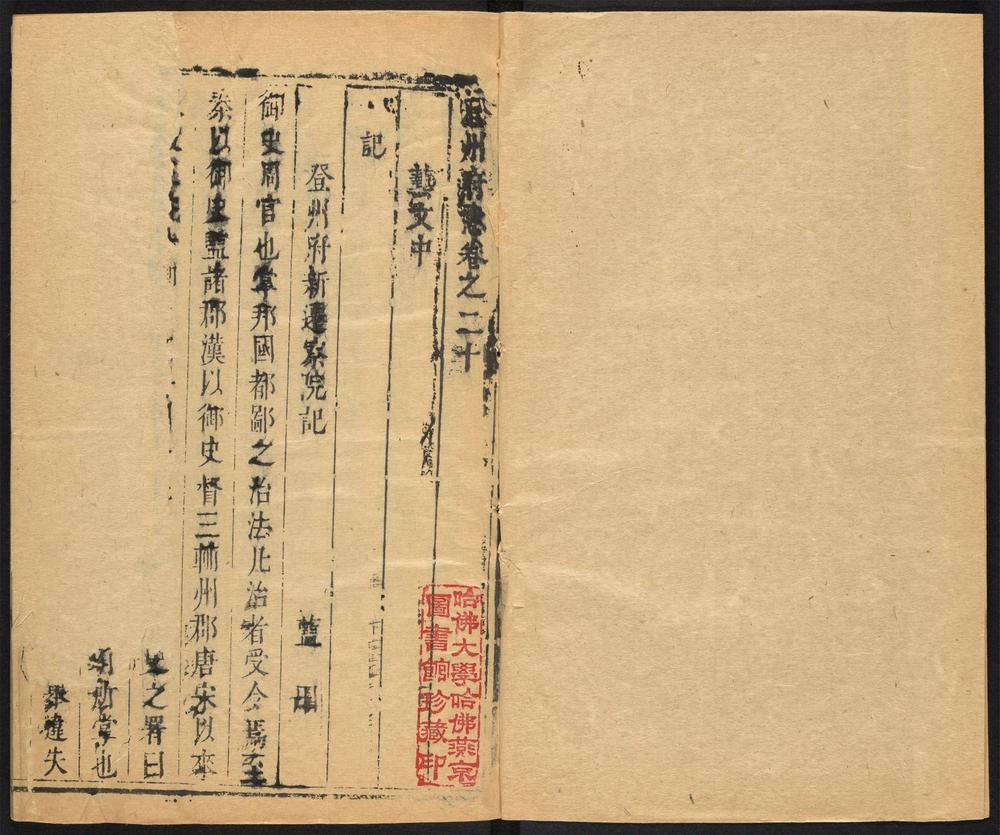 登州府志卷之二十
藝文中
記
登州府新遷察院記
藍田
御史周官也掌邦國都鄙之治法凡治者受令焉
秦以御史監諸郡漢以御史督三輔州郡唐宋以來
之署曰
所掌也
違失
哈佛大學哈佛燕京
圖書館珍藏印